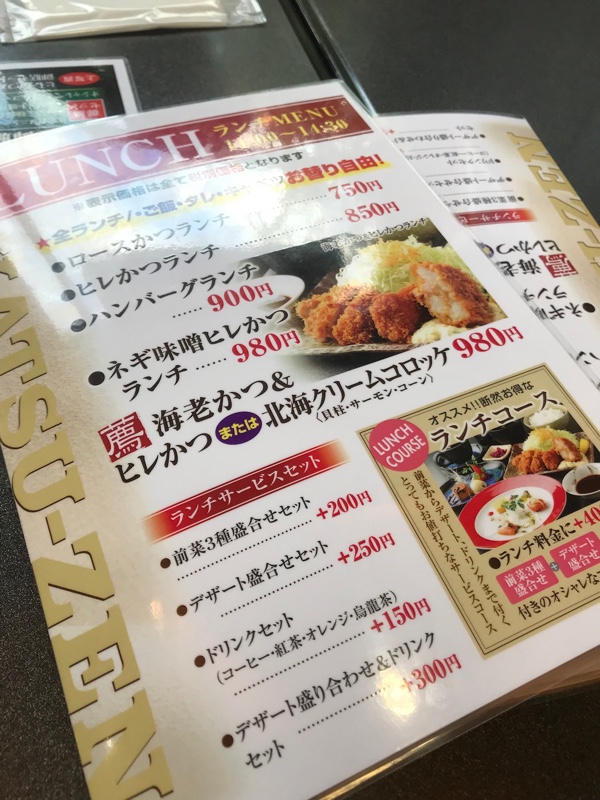 LUNCH ランチMENU
～14:30
※表示価格は全て税別価格となります
★全ランチ/・ご飯・タレ・キャベツお替り自由!
●ロースかつランチ 750円
●ヒレかつランチ 850円
●ハンバーグランチ
…… 900円
●ネギ味噌ヒレかつ
ランチ …… 980円
海老かつ&ヒレかつランチ
薦 海老かつ&
ヒレかつ または 北海クリームコロッケ 980円
(貝柱・サーモン・コーン)
ランチサービスセット
●前菜3種盛合せセット
+200円
●デザート盛合せセット
+250円
●ドリンクセット
(コーヒー・紅茶・オレンジ・烏龍茶)
+150円
●デザート盛り合わせ&ドリンク
セット +300円
LUNCH
COURSE
オススメ!!断然お得な
ランチコース。
前菜からデザート、ドリンクまで付く
とってもお値打ちなサービスコース
●ランチ料金に+40
前菜3種
盛合せ
+
デザート
盛合せ
付きのオシャレな
ATSU-ZEN